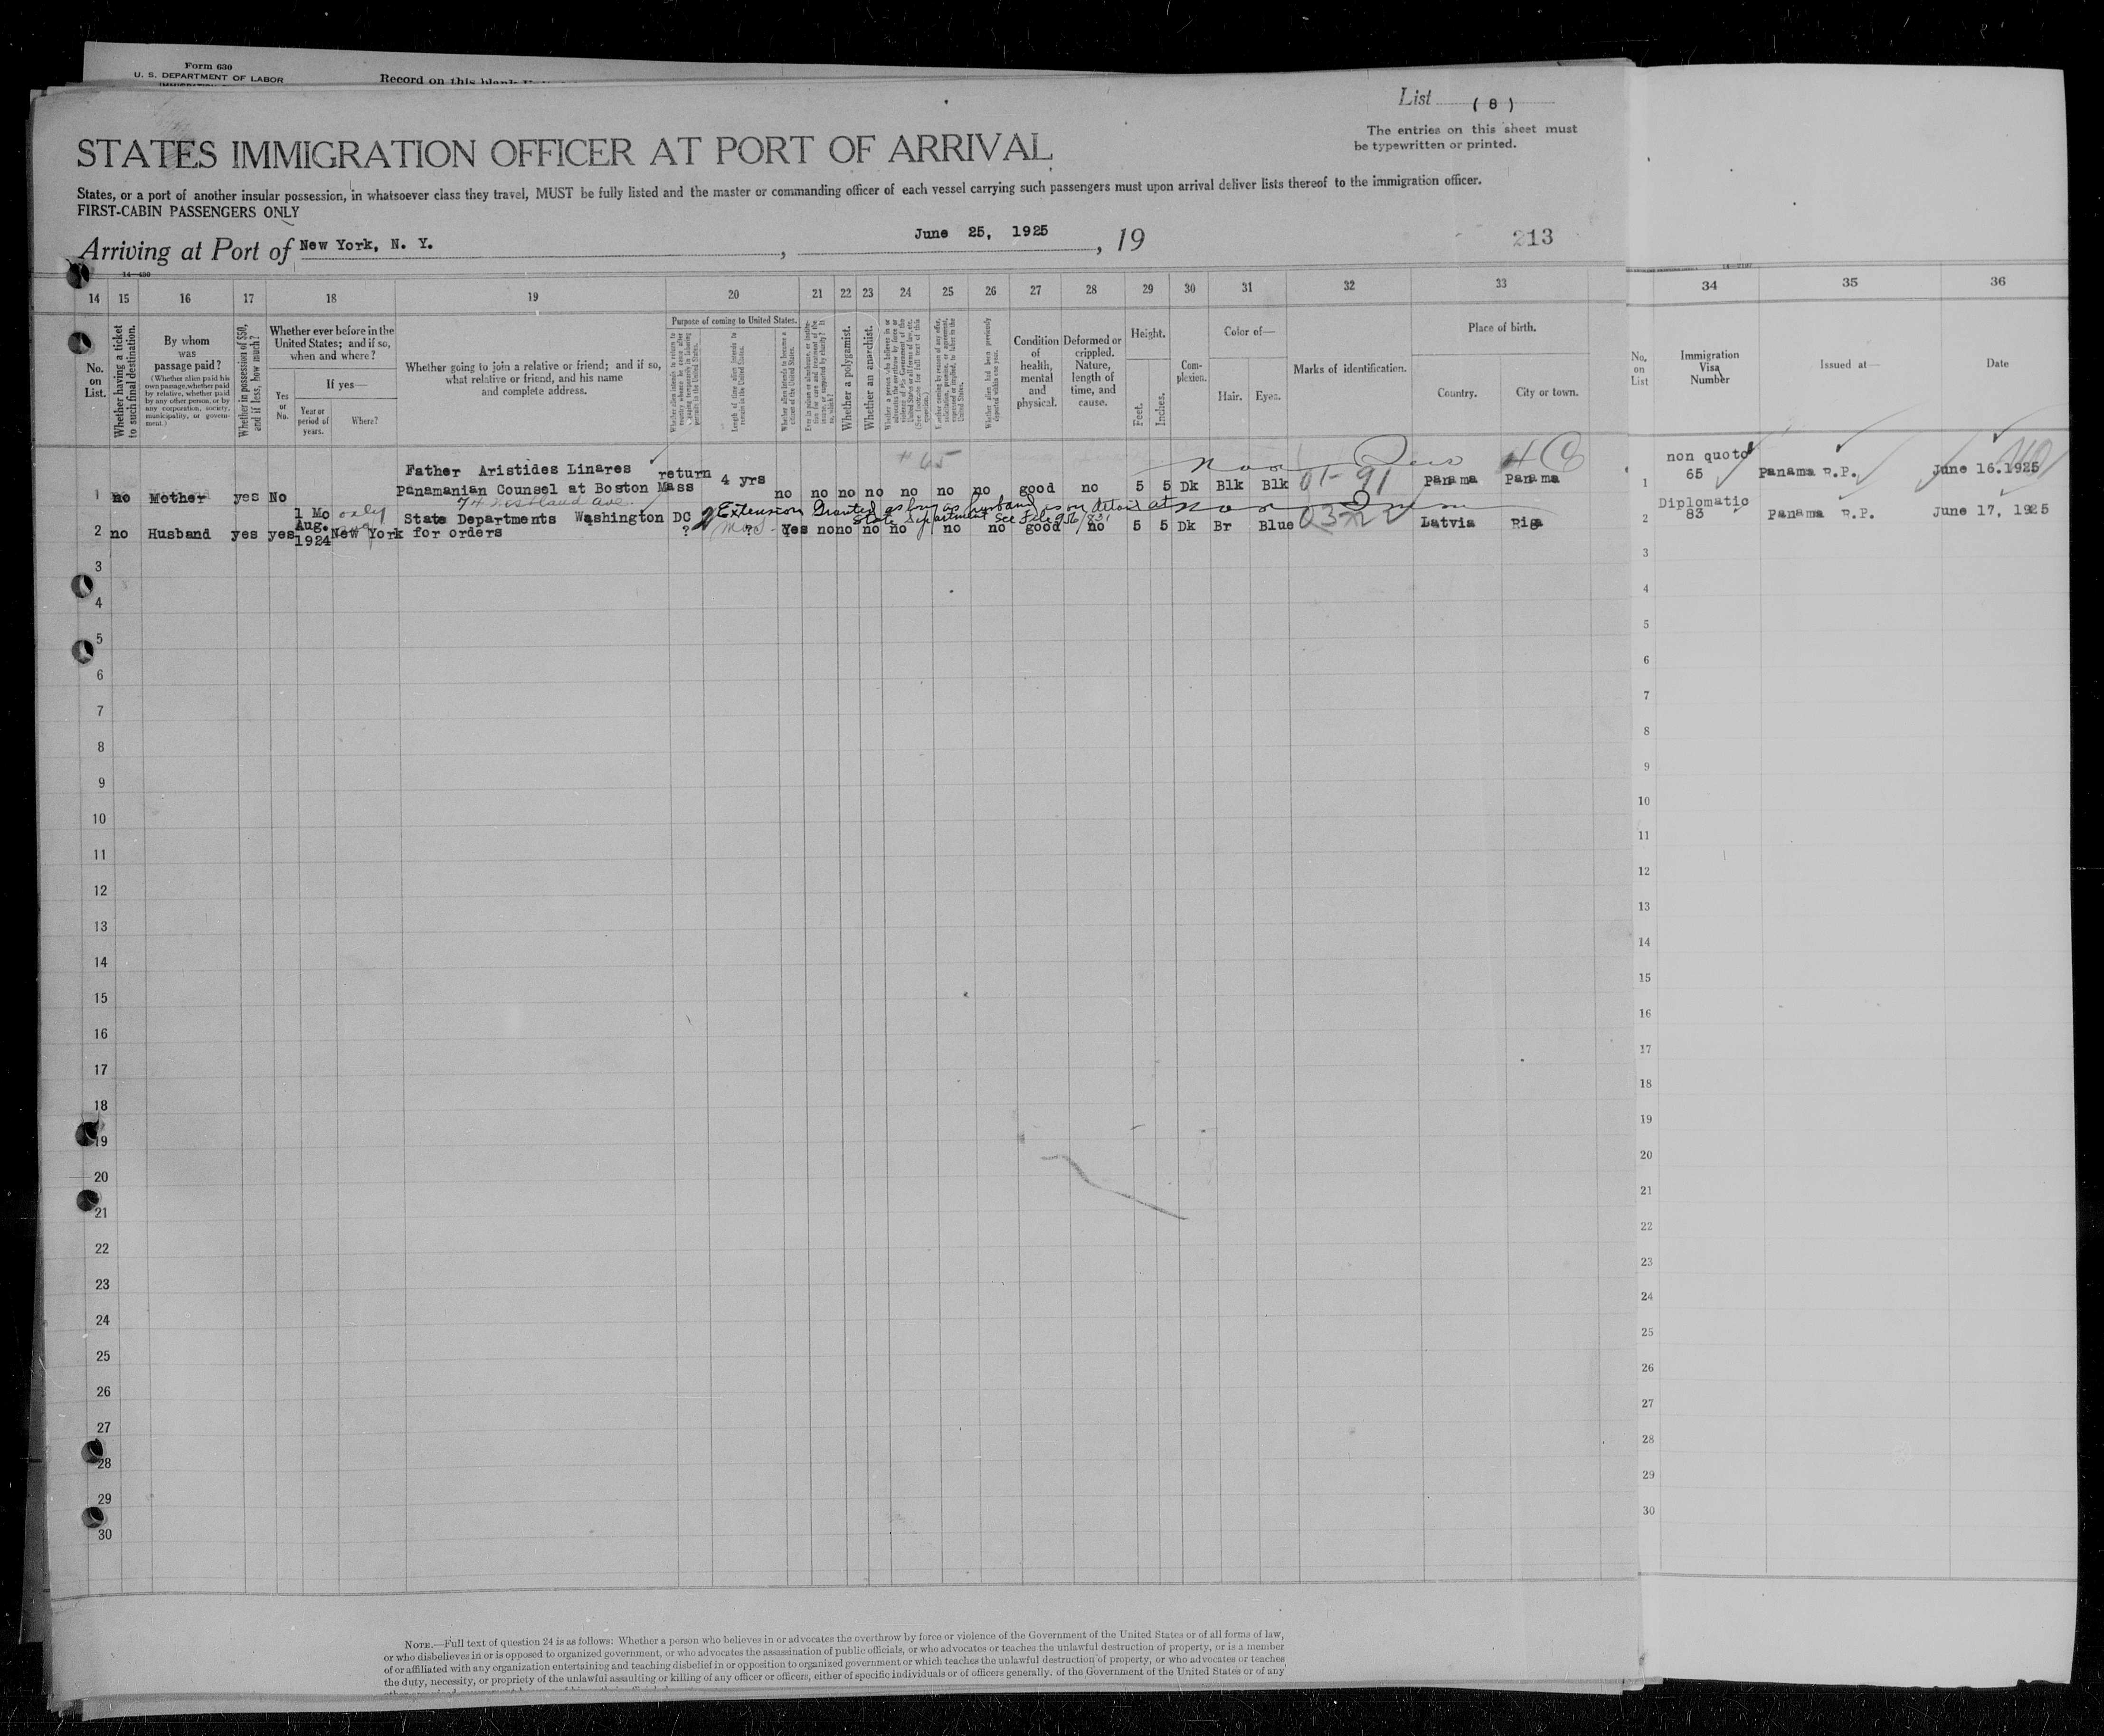 Form 630
U. S. DEPARTMENT OF LABOR
Record on this blank
List ( 8 )
The entries on this sheet must
be typewritten or printed.
STATES IMMIGRATION OFFICER AT PORT OF ARRIVAL
States, or a port of another insular possession, in whatsoever class they travel, MUST be fully listed and the master or commanding officer of each vessel carrying such passengers must upon arrival deliver lists thereof to the immigration officer.
FIRST-CABIN PASSENGERS ONLY
Arriving at Port of New York, N. Y. , June 25, 1925 , 19
213
14 15 16 17 18 19 20 21 22 23 24 25 26 27 28 29 30 31 32 33 34 35 36
No. on List.
Whether having a ticket to such final destination.
By whom was passage paid?
(Whether alien paid his own passage, whether paid by relative, whether paid by any other person, or by any corporation, society, municipality, or government.)
Whether in possession of $50, and if less, how much?
Whether ever before in the United States; and if so, when and where?
Yes or No.
If yes—
Year or period of years.
Where?
Whether going to join a relative or friend; and if so, what relative or friend, and his name and complete address.
Purpose of coming to United States.
Length of time alien intends to remain in the United States.
Whether alien intends to become a citizen of the United States.
Whether a polygamist.
Whether an anarchist.
Condition of health, mental and physical.
Deformed or crippled. Nature, length of time, and cause.
Height.
Feet.
Inches.
Complexion.
Color of—
Hair.
Eyes.
Marks of identification.
Place of birth.
Country.
City or town.
No. on List
Immigration Visa Number
Issued at—
Date
# 65
Father Aristides Linares return 4 yrs
1 no Mother yes No Panamanian Counsel at Boston Mass no no no no no no no good no 5 5 Dk Blk Blk 01-91 Panama Panama
1 non quota 65 Panama R.P. June 16.1925
Extension Granted as long as husband is on detail at
State Department See File
1 Mo only
2 no Husband yes yes Aug. 1924 New York State Departments Washington DC for orders ? ? Yes no no no no no no good no 5 5 Dk Br Blue Latvia Riga
2 Diplomatic 83 Panama R.P. June 17, 1925
3 3
4 4
5 5
6 6
7 7
8 8
9 9
10 10
11 11
12 12
13 13
14 14
15 15
16 16
17 17
18 18
19 19
20 20
21 21
22 22
23 23
24 24
25 25
26 26
27 27
28 28
29 29
30 30
NOTE.—Full text of question 24 is as follows: Whether a person who believes in or advocates the overthrow by force or violence of the Government of the United States or of all forms of law,
or who disbelieves in or is opposed to organized government, or who advocates the assassination of public officials, or who advocates or teaches the unlawful destruction of property, or is a member
of or affiliated with any organization entertaining and teaching disbelief in or opposition to organized government or which teaches the unlawful destruction of property, or who advocates or teaches
the duty, necessity, or propriety of the unlawful assaulting or killing of any officer or officers, either of specific individuals or of officers generally. of the Government of the United States or of any